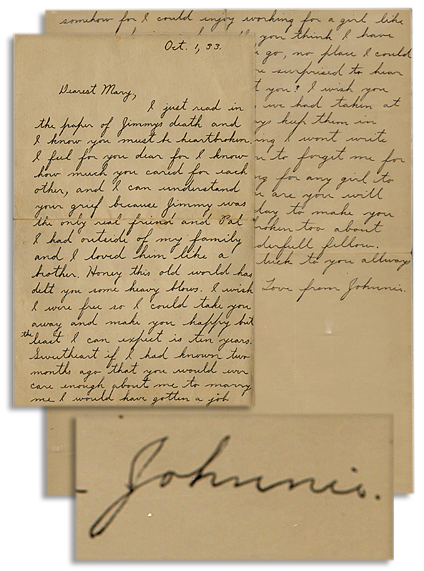 Oct. 1, 33.
Dearest Mary,
I just read in
the paper of Jimmys death and
I know you must be heartbroken
I feel for you dear for I know
how much you cared for each
other, and I can understand
your grief because Jimmy was
the only real friend and Pal
I had outside of my family
and I loved him like a
brother. Honey this old world has
delt you some heavy blows. I wish
I were free so I could take you
away and make you happy but
the least I can expect is ten years.
Sweetheart if I had known two
months ago that you would ever
care enough about me to marry
me I would have gotten a job
somehow for I could enjoy working for a girl like
you think I have
go, no place I could
surprised to hear
you? I wish you
we had taken at
keep them in
I wont write
to forget me for
for any girl to
are you will
day to make you
too about
fellow.
luck to you allways
Love from Johnnie.
Johnnie.